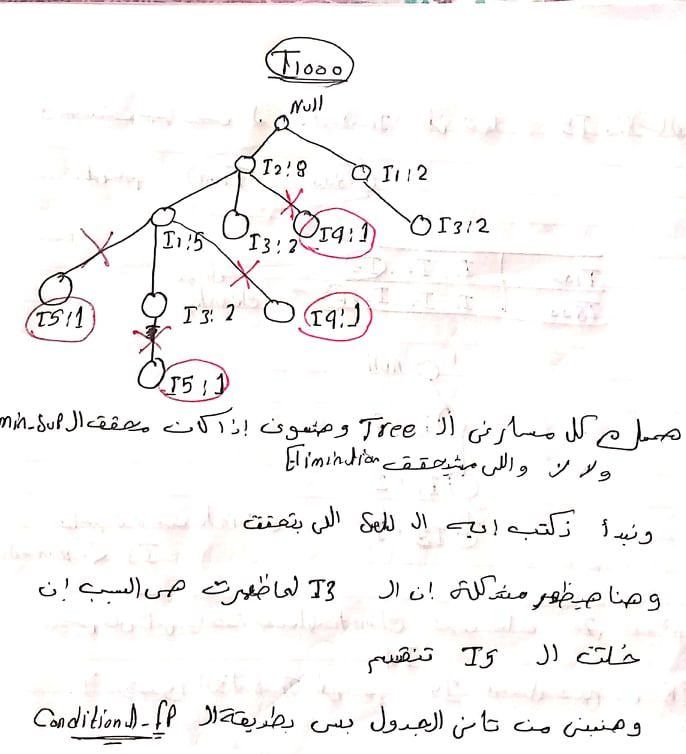 T1000
Null
I2:8
I1:2
I1:5
I3:2
I4:1
I3:2
I5:1
I3:2
I4:1
I5:1
همسك كل مسار في الـ Tree وهشوف إذا كان محقق الـ min-sup
ولا لا واللي مبيحققش Elimination
ونبدأ نكتب ايه الـ Sets اللي بتحقق
وهنا هيظهر مشكلة ان الـ I3 لما ظهرت هي السبب إن
خلت الـ I5 تنقسم
وهنبني من تاني الجدول بس بطريقة الـ Conditional-FP